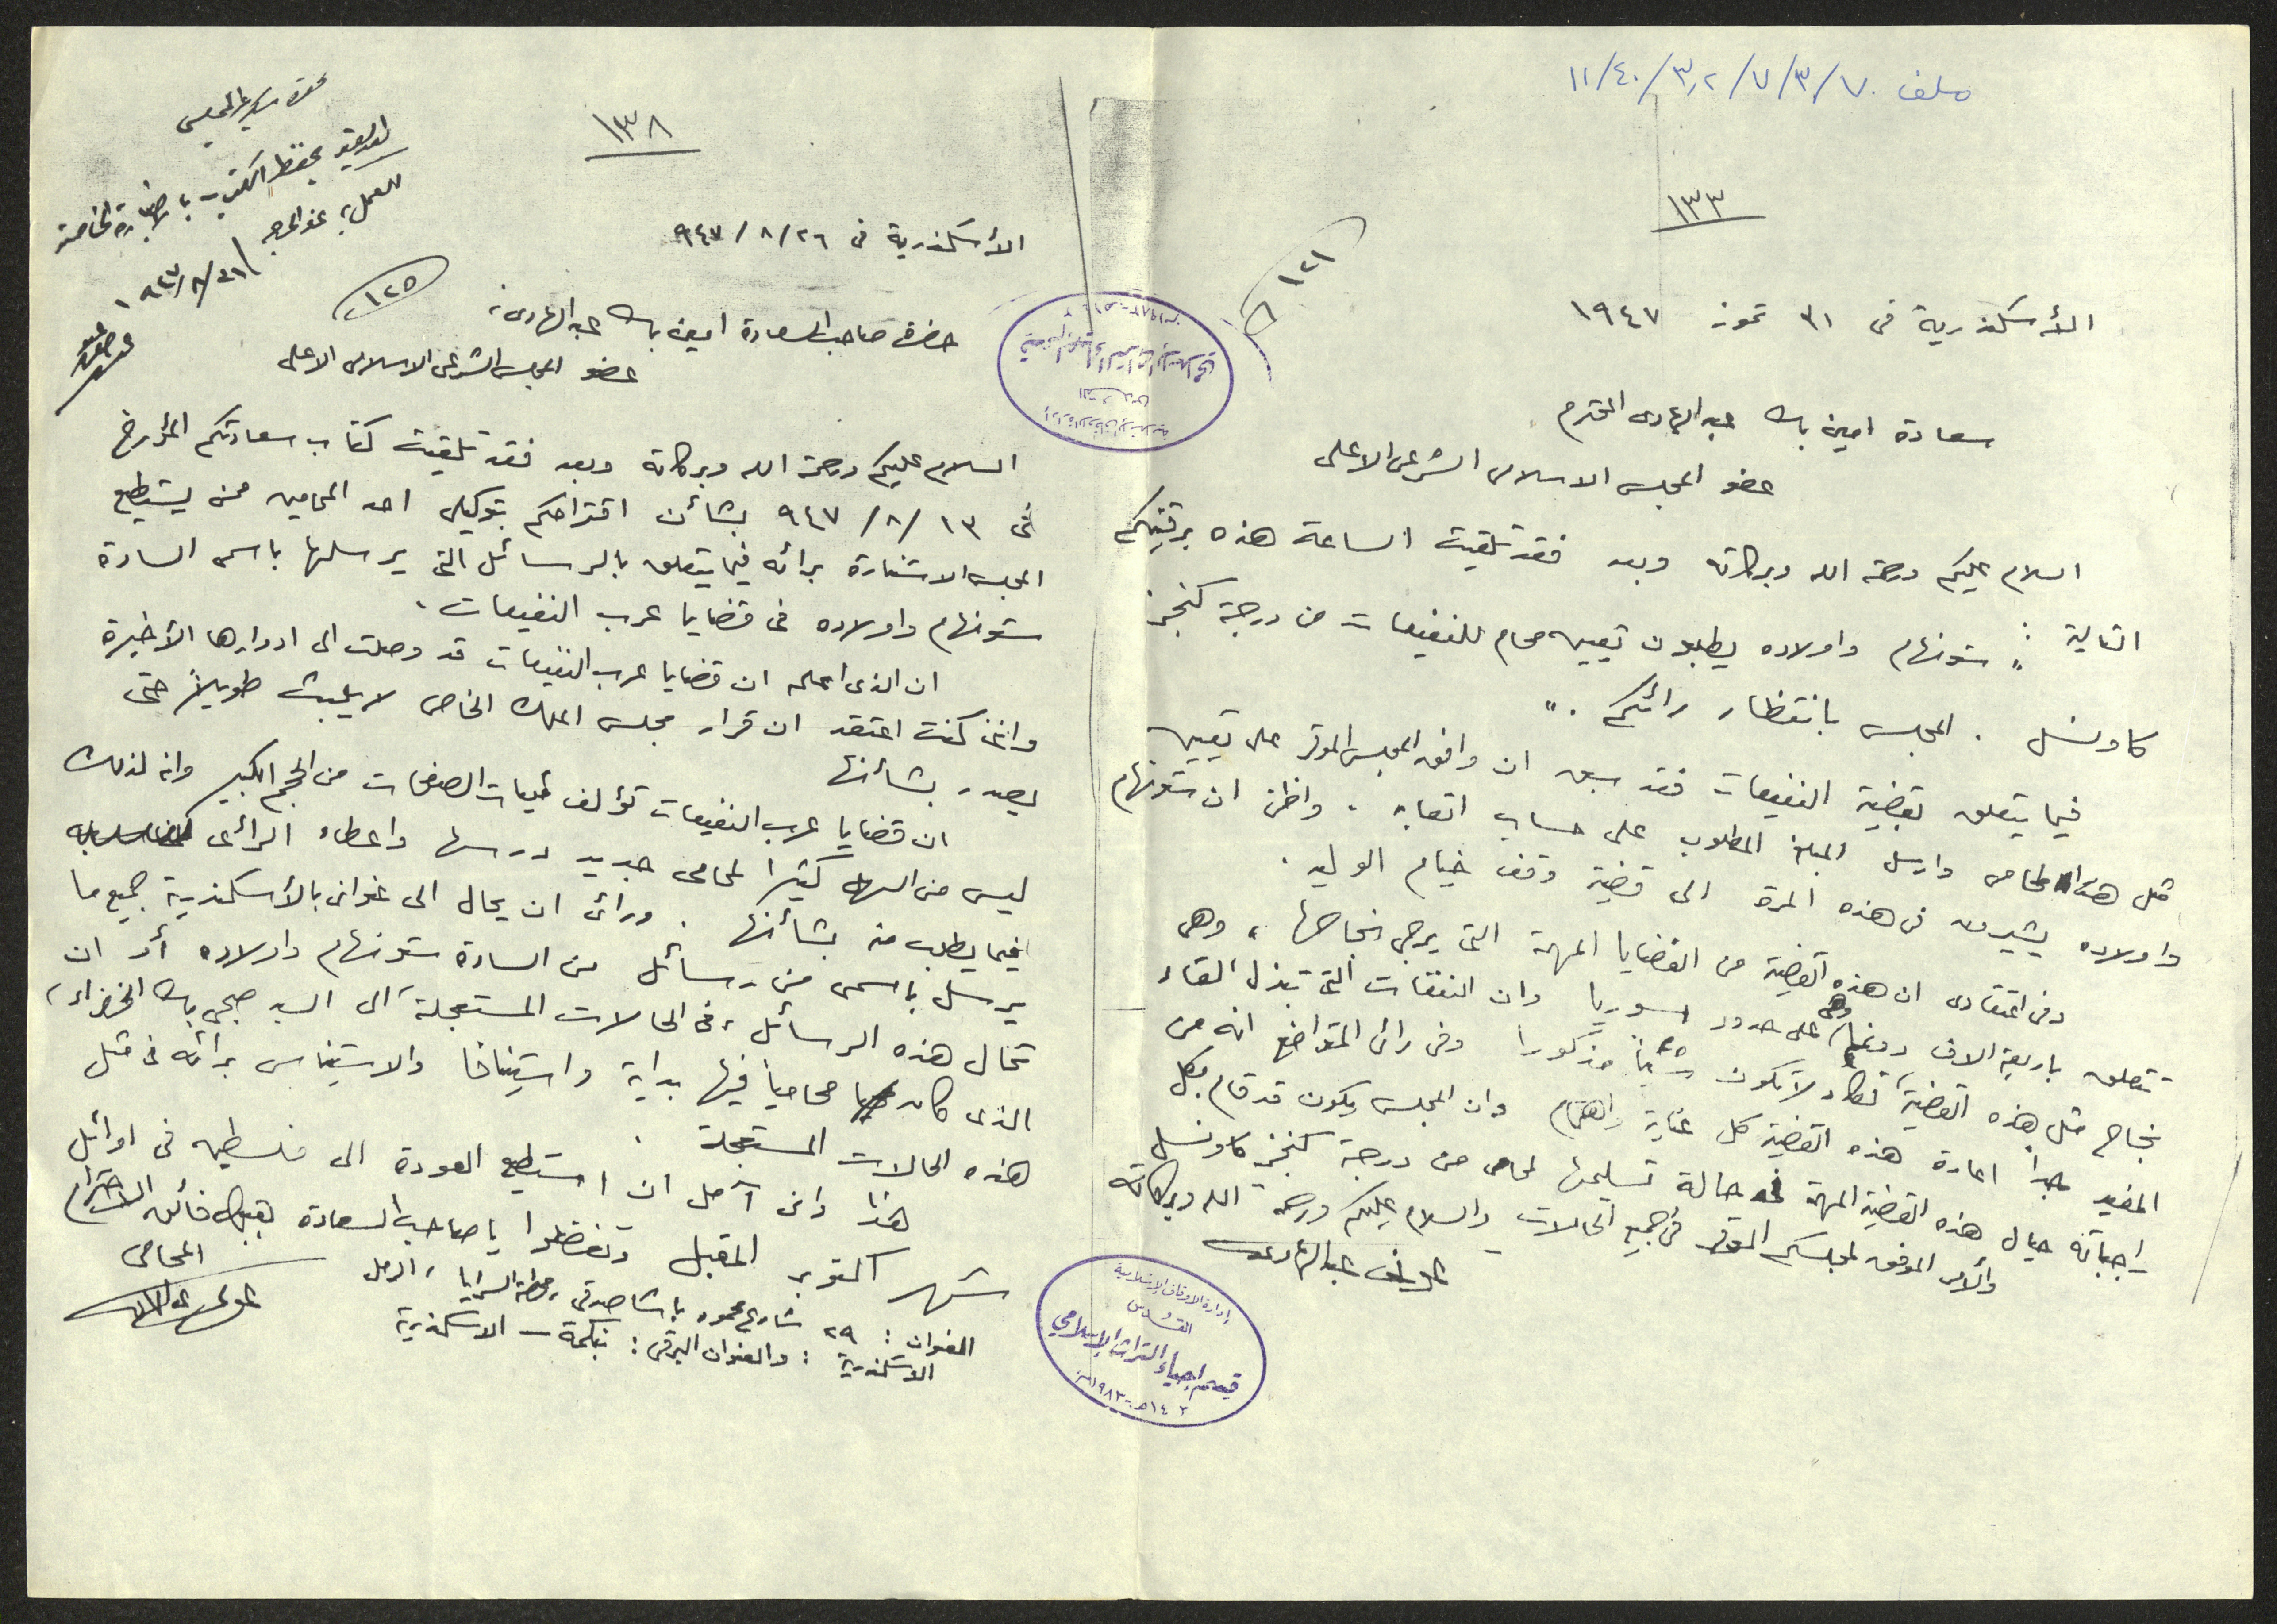 ملف ١١/٤٠/٣،٢/٧/٣/٧٠
١٣٣
١٢١
الأسكندرية في ٣١ تموز ١٩٤٧
سعادة امين بك عبد الهادي المحترم
عضو المجلس الاسلامي الشرعي الاعلى
السلام عليكم ورحمة الله وبركاته وبعد فقد تلقيت الساعة هذه برقيتكم
التالية : " ستونهام واولاده يطلبون تعيين محام للنفيعات من درجة كنجز
كاونسل . المجلس بانتظار رائكم . "
فيما يتعلق بقضية النفيعات فقد سبق ان وافق المجلس الموقر على تعيين
مثل هذا المحامي وارسل المبلغ المطلوب على حساب اتعابه . واظن ان ستونهام
واولاده يشيرون في هذه المرة الى قضية وقف خيام الوليد .
وفي اعتقادي ان هذه القضية من القضايا المهمة التي يرجى نجاحها ، وهي
تتعلق باربعة الاف دونما وهي على حدود سوريا وان النفقات التي تبذل لقاء
نجاح مثل هذه القضية تكاد لا تكون شيئاً مذكورا وفي رائي المتواضع انه من
المفيد جداً اعارة هذه القضية كل عناية واهتمام وان المجلس يكون قد قام بكل
واجباته حيال هذه القضية المهمة في حالة تسليمها لمحامي من درجة كنجز كاونسل
والأمر الموفق لمجلسكم الموقر في جميع الحالات والسلام عليكم ورحمة الله وبركاته
عوني عبد الهادي
إدارة الأوقاف الإسلامية
القدس
قسم إحياء التراث الإسلامي
١٤٠٣هـ - ١٩٨٣م
١٣٨
حضرة سكرتير المجلس
للعمل
٣١/٨/١٩٤٧
الأسكندرية في ٢٦/٨/٩٤٧
١٢٥
حضرة صاحب السعادة امين بك عبد الهادي ،
عضو المجلس الشرعي الاسلامي الاعلى
السلام عليكم ورحمة الله وبركاته وبعد فقد تلقيت كتاب سعادتكم المؤرخ
في ١٣/٨/٩٤٧ بشأن اقتراحكم بتوكيل احد المحامين ممن يستطيع
المجلس الاستنارة برائه فيما يتعلق بالرسائل التي يرسلها باسمي السادة
ستونهام واولاده في قضايا عرب النفيعات .
ان الذي اعلمه ان قضايا عرب النفيعات قد وصلت الى ادوارها الأخيرة
وانني كنت اعتقد ان قرار مجلس الملك الخاص لا يلبث طويلاً حتى
يصدر بشأنها
ان قضايا عرب النفيعات تؤلف مئات الصفحات من الحجم الكبير وانه لذلك
ليس من السهل كثيرا لمحامي جديد درسها واعطاء الرائي
فيما يطلب منه بشأنها . ورائي ان يحال الى عنواني بالأسكندرية جميع ما
يرسل باسمي من رسائل من السادة ستونهام واولاده أو ان
تحال هذه الرسائل ، في الحالات المستعجلة ، الى السيد صبحي بك الخضراء ،
الذي كان محامياً فيها بداية واستينافا والاستيناس برائه في مثل
هذه الحالات المستعجلة .
هذا واني آمل ان استطيع العودة الى فلسطين في اوائل
شهر اكتوبر المقبل وتفضلوا يا صاحب السعادة بقبول فائق الاحترام
المحامي
عوني عبد الهادي
العنوان : ٢٩ شارع محمود باشا صدقي ، محطة السرايا ، الرمل
الاسكندرية : والعنوان البرقي : نبكمة - الاسكندرية
إدارة الأوقاف الإسلامية
القدس
قسم إحياء التراث الإسلامي
١٤٠٣هـ - ١٩٨٣م